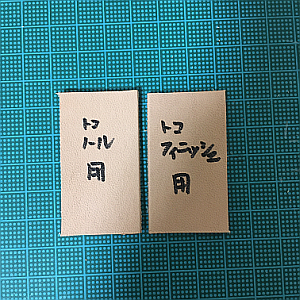 トコ
ノール
用
トコ
フィニッシュ
用